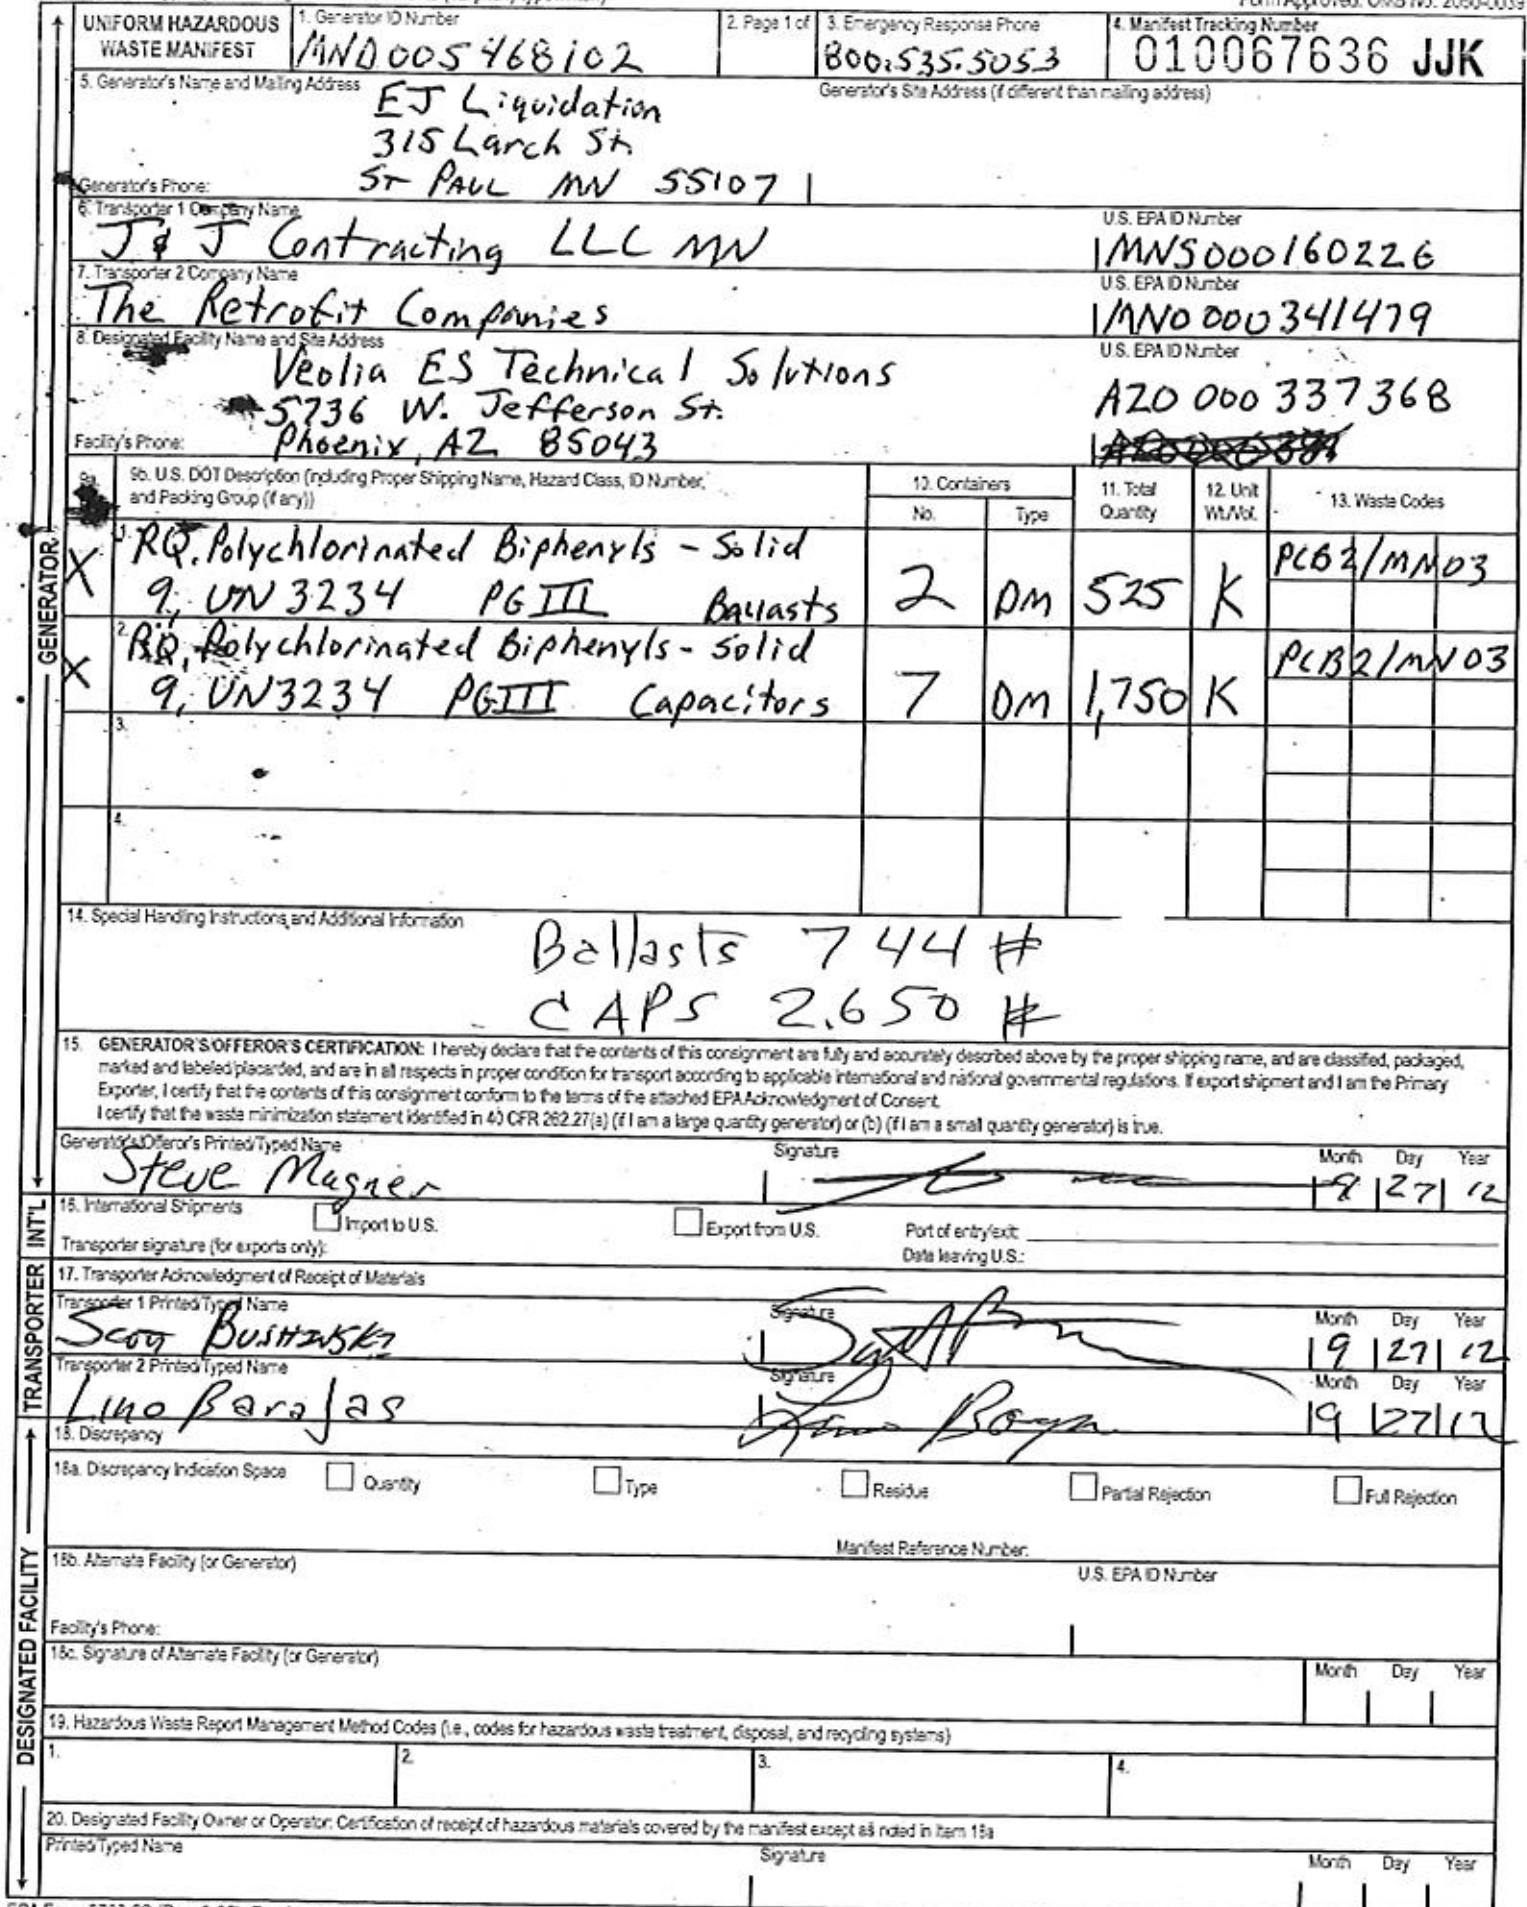 Form Approved. OMB No. 2050-0039
UNIFORM HAZARDOUS WASTE MANIFEST
1. Generator ID Number
MND005468102
2. Page 1 of
3. Emergency Response Phone
800.535.5053
4. Manifest Tracking Number
010067636 JJK
5. Generator's Name and Mailing Address
EJ Liquidation
315 Larch St.
ST PAUL MN 55107
Generator's Site Address (if different than mailing address)
Generator's Phone:
6. Transporter 1 Company Name
J & J Contracting LLC MN
U.S. EPA ID Number
MNS000160226
7. Transporter 2 Company Name
The Retrofit Companies
U.S. EPA ID Number
MN0000341479
8. Designated Facility Name and Site Address
Veolia ES Technical Solutions
5736 W. Jefferson St.
Phoenix, AZ 85043
U.S. EPA ID Number
AZ0 000 337368
Facility's Phone:
9b. U.S. DOT Description (including Proper Shipping Name, Hazard Class, ID Number, and Packing Group (if any))
10. Containers
No.
Type
11. Total Quantity
12. Unit Wt./Vol.
13. Waste Codes
X 1. RQ, Polychlorinated Biphenyls - Solid
9, UN3234 PG III Ballasts
2 DM 525 K PCB2/MN03
X 2. RQ, Polychlorinated Biphenyls - Solid
9, UN3234 PG III Capacitors
7 DM 1,750 K PCB2/MN03
3.
4.
14. Special Handling Instructions and Additional Information
Ballasts 744 #
CAPS 2,650 #
15. GENERATOR'S/OFFEROR'S CERTIFICATION: I hereby declare that the contents of this consignment are fully and accurately described above by the proper shipping name, and are classified, packaged,
marked and labeled/placarded, and are in all respects in proper condition for transport according to applicable international and national governmental regulations. If export shipment and I am the Primary
Exporter, I certify that the contents of this consignment conform to the terms of the attached EPA Acknowledgment of Consent.
I certify that the waste minimization statement identified in 40 CFR 262.27(a) (if I am a large quantity generator) or (b) (if I am a small quantity generator) is true.
Generator's/Offeror's Printed/Typed Name
Steve Magner
Signature
Month Day Year
9 27 12
16. International Shipments
Import to U.S.
Export from U.S.
Port of entry/exit:
Transporter signature (for exports only):
Date leaving U.S.:
17. Transporter Acknowledgment of Receipt of Materials
Transporter 1 Printed/Typed Name
Scott BUSHINSKI
Signature
Month Day Year
9 27 12
Transporter 2 Printed/Typed Name
Lino Barajas
Signature
Month Day Year
9 27 12
18. Discrepancy
18a. Discrepancy Indication Space
Quantity
Type
Residue
Partial Rejection
Full Rejection
Manifest Reference Number:
18b. Alternate Facility (or Generator)
U.S. EPA ID Number
Facility's Phone:
18c. Signature of Alternate Facility (or Generator)
Month Day Year
19. Hazardous Waste Report Management Method Codes (i.e., codes for hazardous waste treatment, disposal, and recycling systems)
1.
2.
3.
4.
20. Designated Facility Owner or Operator: Certification of receipt of hazardous materials covered by the manifest except as noted in Item 18a
Printed/Typed Name
Signature
Month Day Year
GENERATOR
INT'L
TRANSPORTER
DESIGNATED FACILITY